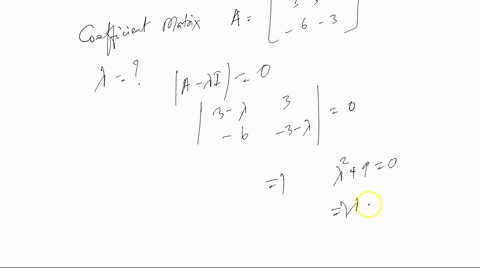 Coefficient Matrix A = [ 3 3
- 6 - 3 ]
λ = ? |A - λI| = 0
| 3 - λ 3
- 6 -3 - λ | = 0
=> λ² + 9 = 0
=> λ